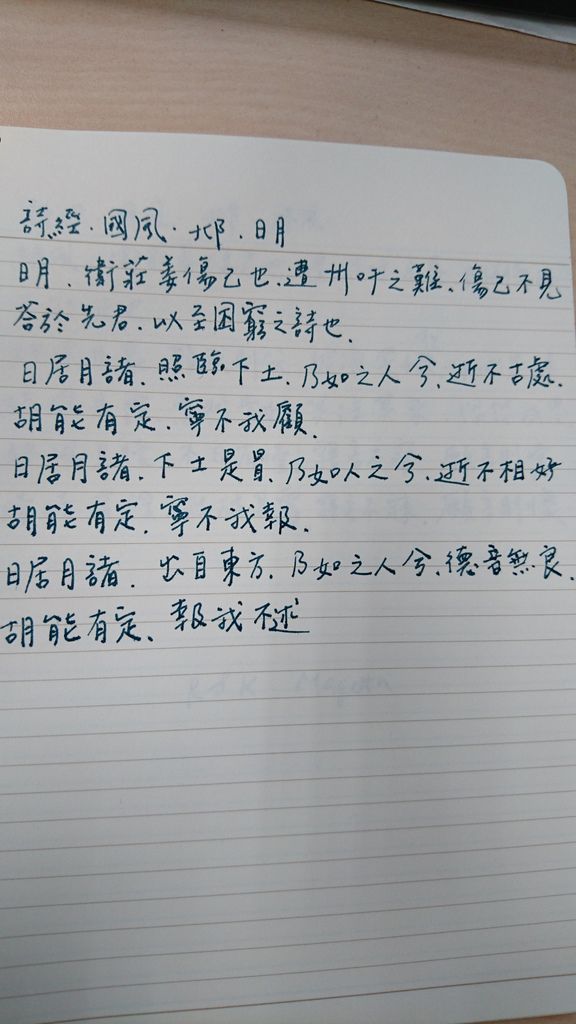 詩經.國風.邶.日月
日月、衛莊姜傷己也、遭州吁之難、傷己不見
荅於先君、以至困窮之詩也、
日居月諸、照臨下土、乃如之人兮、逝不古處、
胡能有定、寧不我顧、
日居月諸、下土是冒、乃如人之兮、逝不相好
胡能有定、寧不我報、
日居月諸、出自東方、乃如之人兮、德音無良、
胡能有定、報我不述